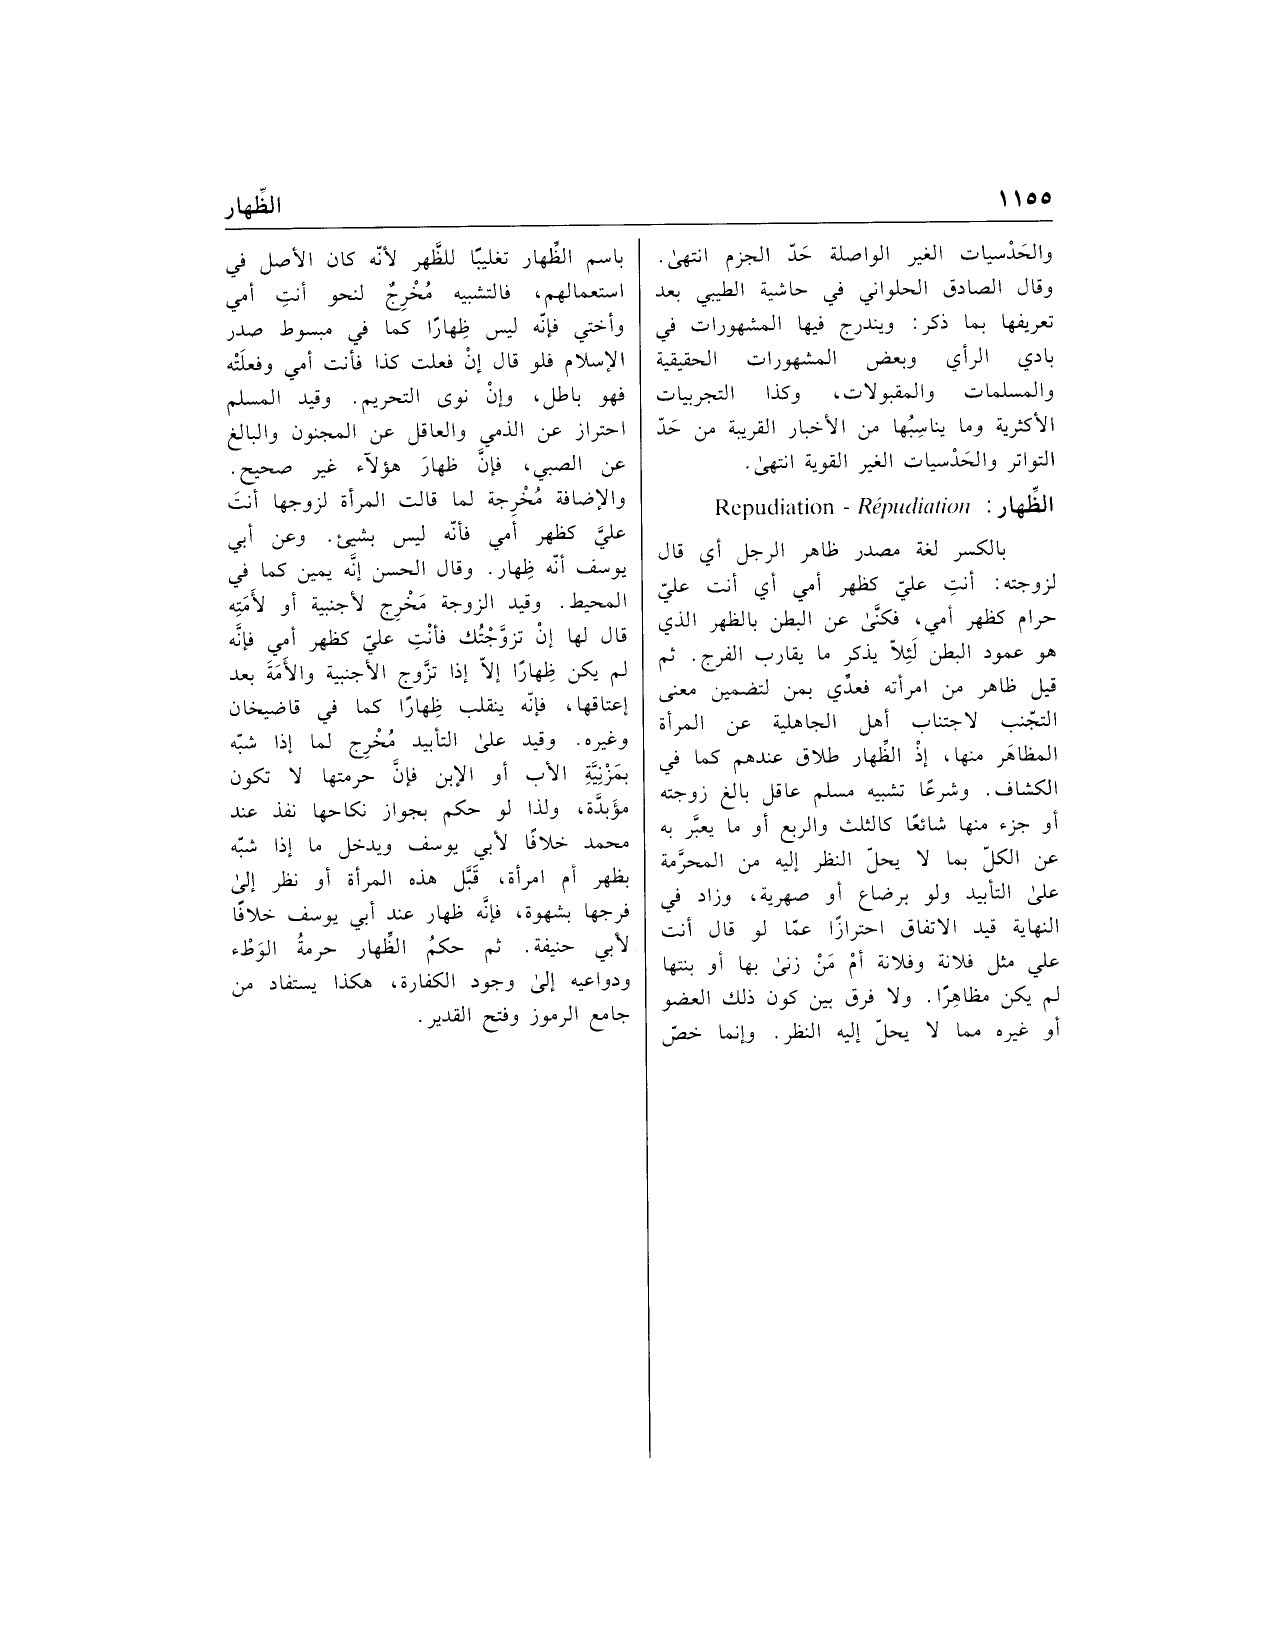 ١١٥٥
الظِّهار
والحَدْسيات الغير الواصلة حَدّ الجزم انتهىٰ.
وقال الصادق الحلواني في حاشية الطيبي بعد
تعريفها بما ذكر: ويندرج فيها المشهورات في
بادي الرأي وبعض المشهورات الحقيقية
والمسلمات والمقبولات، وكذا التجربيات
الأكثرية وما يناسِبُها من الأخبار القريبة من حَدّ
التواتر والحَدْسيات الغير القوية انتهىٰ.
الظِّهار: Repudiation - Répudiation
بالكسر لغة مصدر ظاهر الرجل أي قال
لزوجته: أنتِ عليّ كظهر أمي أي أنت عليّ
حرام كظهر أمي، فكنَّىٰ عن البطن بالظهر الذي
هو عمود البطن لَئِلاّ يذكر ما يقارب الفرج. ثم
قيل ظاهر من امرأته فعدِّي بمن لتضمين معنى
التجّنب لاجتناب أهل الجاهلية عن المرأة
المظاهَر منها، إذْ الظِّهار طلاق عندهم كما في
الكشاف. وشرعًا تشبيه مسلم عاقل بالغ زوجته
أو جزء منها شائعًا كالثلث والربع أو ما يعبَّر به
عن الكلّ بما لا يحلّ النظر إليه من المحرَّمة
علىٰ التأبيد ولو برضاع أو صهرية، وزاد في
النهاية قيد الاتفاق احترازًا عمّا لو قال أنت
علي مثل فلانة وفلانة أمْ مَنْ زنىٰ بها أو بنتها
لم يكن مظاهِرًا. ولا فرق بين كون ذلك العضو
أو غيره مما لا يحلّ إليه النظر. وإنما خصّ
باسم الظِّهار تغليبًا للظَّهر لأنّه كان الأصل في
استعمالهم، فالتشبيه مُخْرِجٌ لنحو أنتِ أمي
وأختي فإنّه ليس ظِهارًا كما في مبسوط صدر
الإسلام فلو قال إنْ فعلت كذا فأنت أمي وفعلَتْه
فهو باطل، وإنْ نوى التحريم. وقيد المسلم
احتراز عن الذمي والعاقل عن المجنون والبالغ
عن الصبي، فإنَّ ظهارَ هؤلآء غير صحيح.
والإضافة مُخْرِجة لما قالت المرأة لزوجها أنتَ
عليَّ كظهر أمي فأنّه ليس بشيئ. وعن أبي
يوسف أنّه ظِهار. وقال الحسن إنَّه يمين كما في
المحيط. وقيد الزوجة مَخْرِج لأجنبية أو لأَمَتِه
قال لها إنْ تزوَّجْتُك فأنْتِ عليّ كظهر أمي فإنَّه
لم يكن ظِهارًا إلاّ إذا تزَّوج الأجنبية والأَمَةَ بعد
إعتاقها، فإنّه ينقلب ظِهارًا كما في قاضيخان
وغيره. وقيد علىٰ التأبيد مُخْرِج لما إذا شبّه
بمَزْنِيَّةِ الأب أو الإبن فإنَّ حرمتها لا تكون
مؤبدَّة، ولذا لو حكم بجواز نكاحها نفذ عند
محمد خلافًا لأبي يوسف ويدخل ما إذا شبّه
بظهر أم امرأة، قَبَّل هذه المرأة أو نظر إلىٰ
فرجها بشهوة، فإنَّه ظهار عند أبي يوسف خلافًا
لأبي حنيفة. ثم حكمُ الظِّهار حرمةُ الوَطْء
ودواعيه إلىٰ وجود الكفارة، هكذا يستفاد من
جامع الرموز وفتح القدير.